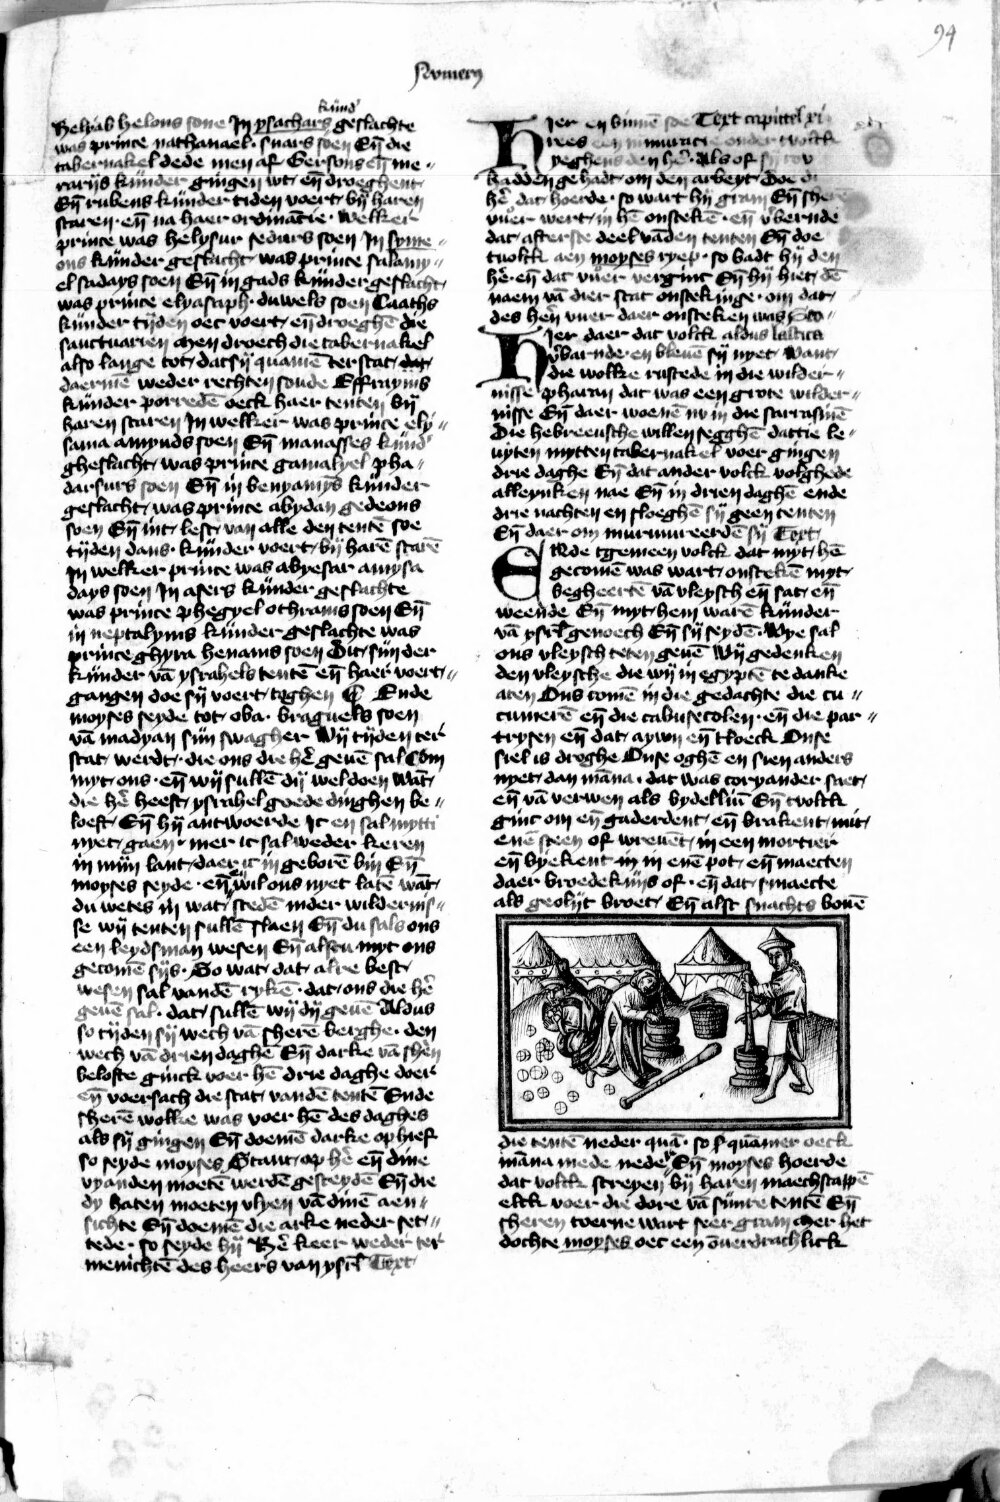 94
Numerij
kund'
Helyab helons sone In ysachars geslachte
was prince nathanael · suars soen Eñ die
tabernakel dede men af Gersons eñ me ·
rarijs kunder gingen wt · eñ droeghent
Eñ rubens kunder tiden voert · bij haren
scaren · eñ na haer ordinacie · Welker
prince was helysur sedurs soen In syme ·
ons kunder geslacht · was prince salamy ·
el sadays soen Eñ in gads kunder geslacht ·
was prince elyasaph · duwels soen Caaths
kunder tijden oec voert · eñ droeghē die
sanctuarien Men droech die tabernakel
also lange tot · dat sij quamē ter stat · dat
daermē weder rechten soude Effrayms
kunder porredē oeck haer tenten bij
haren scaren In welker was prince ely ·
sama amyuds soen Eñ manasses kund'
gheslacht · was prince gamalyel pha ·
darsurs soen Eñ in benyamijs kunder
geslacht · was prince abydan gedeons
soen Eñ int · lest · van alle den tentē soe
tijden dans · kunder voert · bij harē scarē
In welker prince was abyesar amysa
days soen In asers kunder geslachte
was prince phegyel othrams soen Eñ
in neptalyms kunder geslachte was
prince ghyra henams soen Dit · sijn der
kunder vā ysrahels tentē eñ haer voert ·
gangen doe sij voert · toghen Ende
moyses seyde tot · oba · braguels soen
vā madyan sijn swagher Wij tijden ter
stat · werdt · die ons die hē geuē sal Com
myt · ons · eñ wij sullē dij wel doen Wāt ·
die hē heeft · ysrahel goede dinghen be ·
loeft · Eñ hij antwoerde Ic en sal mytti
nyet · gaen · mer ic sal weder keren
in mijn lant · daer ic in geborē bin Eñ
moyses seyde · eñ wil ons nyet latē wāt ·
du wetes in wat · stedē inder wildernis ·
se wij tenten sullē slaen Eñ du sals ons
een leydsman wesen Eñ alstu myt ons
gecomē sijs · So wat · dat · alre best ·
wesen sal vandē rykē · dat · ons die hē
geuē sal · dat · sullē wij dij geuē Aldus
so tijden sij wech vā sherē berghe · den
wech vā drien daghē Eñ darke vā shēn
beloste ginck voer hē drie daghe doer
eñ voersach die stat · vandē tentē Ende
sherē wolke was voer hē des daghes
als sij gingen Eñ doemē darke op hief
so seyde moyses Stant · op hē eñ dine
vyanden moetē werdē gesteydē Eñ die
dy haten moeten vlyen vā dinē aen ·
sichte Eñ doemē die arke neder set ·
tede · so seyde hij Hē keer weder ter
menichtē des heers van ysrl Text
Hier en binnē soe Text capittel xi
rees een murmuracie onder tvolck
yeghens den hē · Als of sij rou
hadden gehadt · om den arbeyt · Doe di
hē dat hoerde · so wart hij gram Eñ sherē
vuer wert · in hē onstekē · eñ vbernde
dat · afterste deel vāden tenten Eñ doe
tvolck aen moyses ryep · so badt hij den
hē · eñ dat vuer verginc Eñ hij hiet · dē
naem vā dier stat onstekinge · om dat ·
des hēn vuer daer onsteken was
Hier daer dat volck aldus
vbarnde · en bleuē sij nyet · Want ·
die wolke rustede in die wilder ·
nisse pharan dat was een grote wilder ·
nisse Eñ daer woenē nv in die sarrasinē
Die hebreeusche willen segghē dattie le ·
uyten mytten tabernakel voer gingen
drie daghe Eñ dat ander volck volghede
alleynken nae Eñ in drien daghē ende
drie nachten en sloeghē sij geen tenten
Eñ daer om murmureerdē sij Text
Eñde tgemeen volck dat myt · hē
gecomē was wart · onstekē myt ·
begheertē vā vleysch eñ sat · eñ
weende Eñ myt · hem warē kunder
vā ysrl genoech Eñ sij seydē · Wye sal
ons vleysch teten geuē Wij gedenken
den vleysche die wij in egyptē te danke
aten Ons comē in die gedachte die cu ·
cumerē eñ die cabusecolen · eñ die par ·
tysen eñ dat · aywn eñ tloeck Onse
siel is droghe Onse oghē en sien anders
nyet · dan māna · dat was coryander saet ·
eñ vā verwen als bydelliū Eñ tvolck
ginc om eñ gaderdent · eñ brakent · mit ·
enē steen of wreuēt · in een mortier
eñ syekent in in enē pot · eñ maecten
daer broedekijns of · eñ dat · smaecte
als geolijt broet · Eñ alst snachts bouē
die tentē neder quā · so quāmer oeck
māna mede neder Eñ moyses hoerde
dat volck screyen bij haren maechscappē
elck voer die dore vā sijnre tentē Eñ
sheren toerne wart seer gram Mer het
dochte moyses oec een ōuerdrachlick